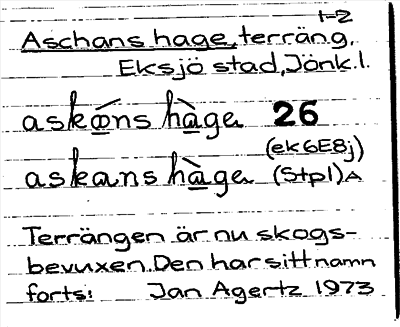 1-2
Aschans hage, terräng,
Eksjö stad, Jönk.l.
askáns hàge 26
(ek6E8j)
askans hàge (Stpl)A
Terrängen är nu skogs-
bevuxen. Den har sitt namn
forts: Jan Agertz 1973